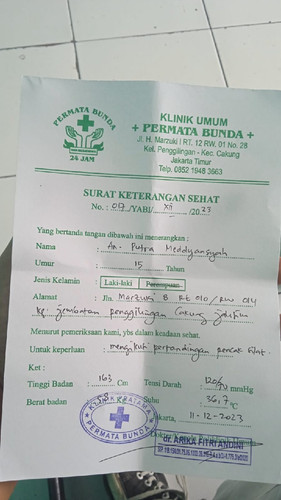 PERMATA BUNDA
24 JAM
KLINIK UMUM
+ PERMATA BUNDA +
Jl. H. Marzuki I RT. 12 RW. 01 No. 28
Kel. Penggilingan - Kec. Cakung
Jakarta Timur
Telp. 0852 1948 3663
SURAT KETERANGAN SEHAT
No. : 07/YABI/ XII /20.23
Yang bertanda tangan dibawah ini menerangkan :
Nama : An. Putra Meddyansyah
Umur : 15 Tahun
Jenis Kelamin : Laki-laki / Perempuan
Alamat : Jln. Marzuki B Rt 010 / RW 014
Kp. jembatan penggilingan Cakung jaktim
Menurut pemeriksaan kami, ybs dalam keadaan sehat.
Untuk keperluan : mengikuti pertandingan pencak silat
Ket :
Tinggi Badan : 163 Cm Tensi Darah : 120/ mmHg
Berat badan : 58 Suhu : 36,7 °C
Jakarta, 11-12-2023
KLINIK PRATAMA
PERMATA BUNDA
dr. ARIKA FITRI ANDINI